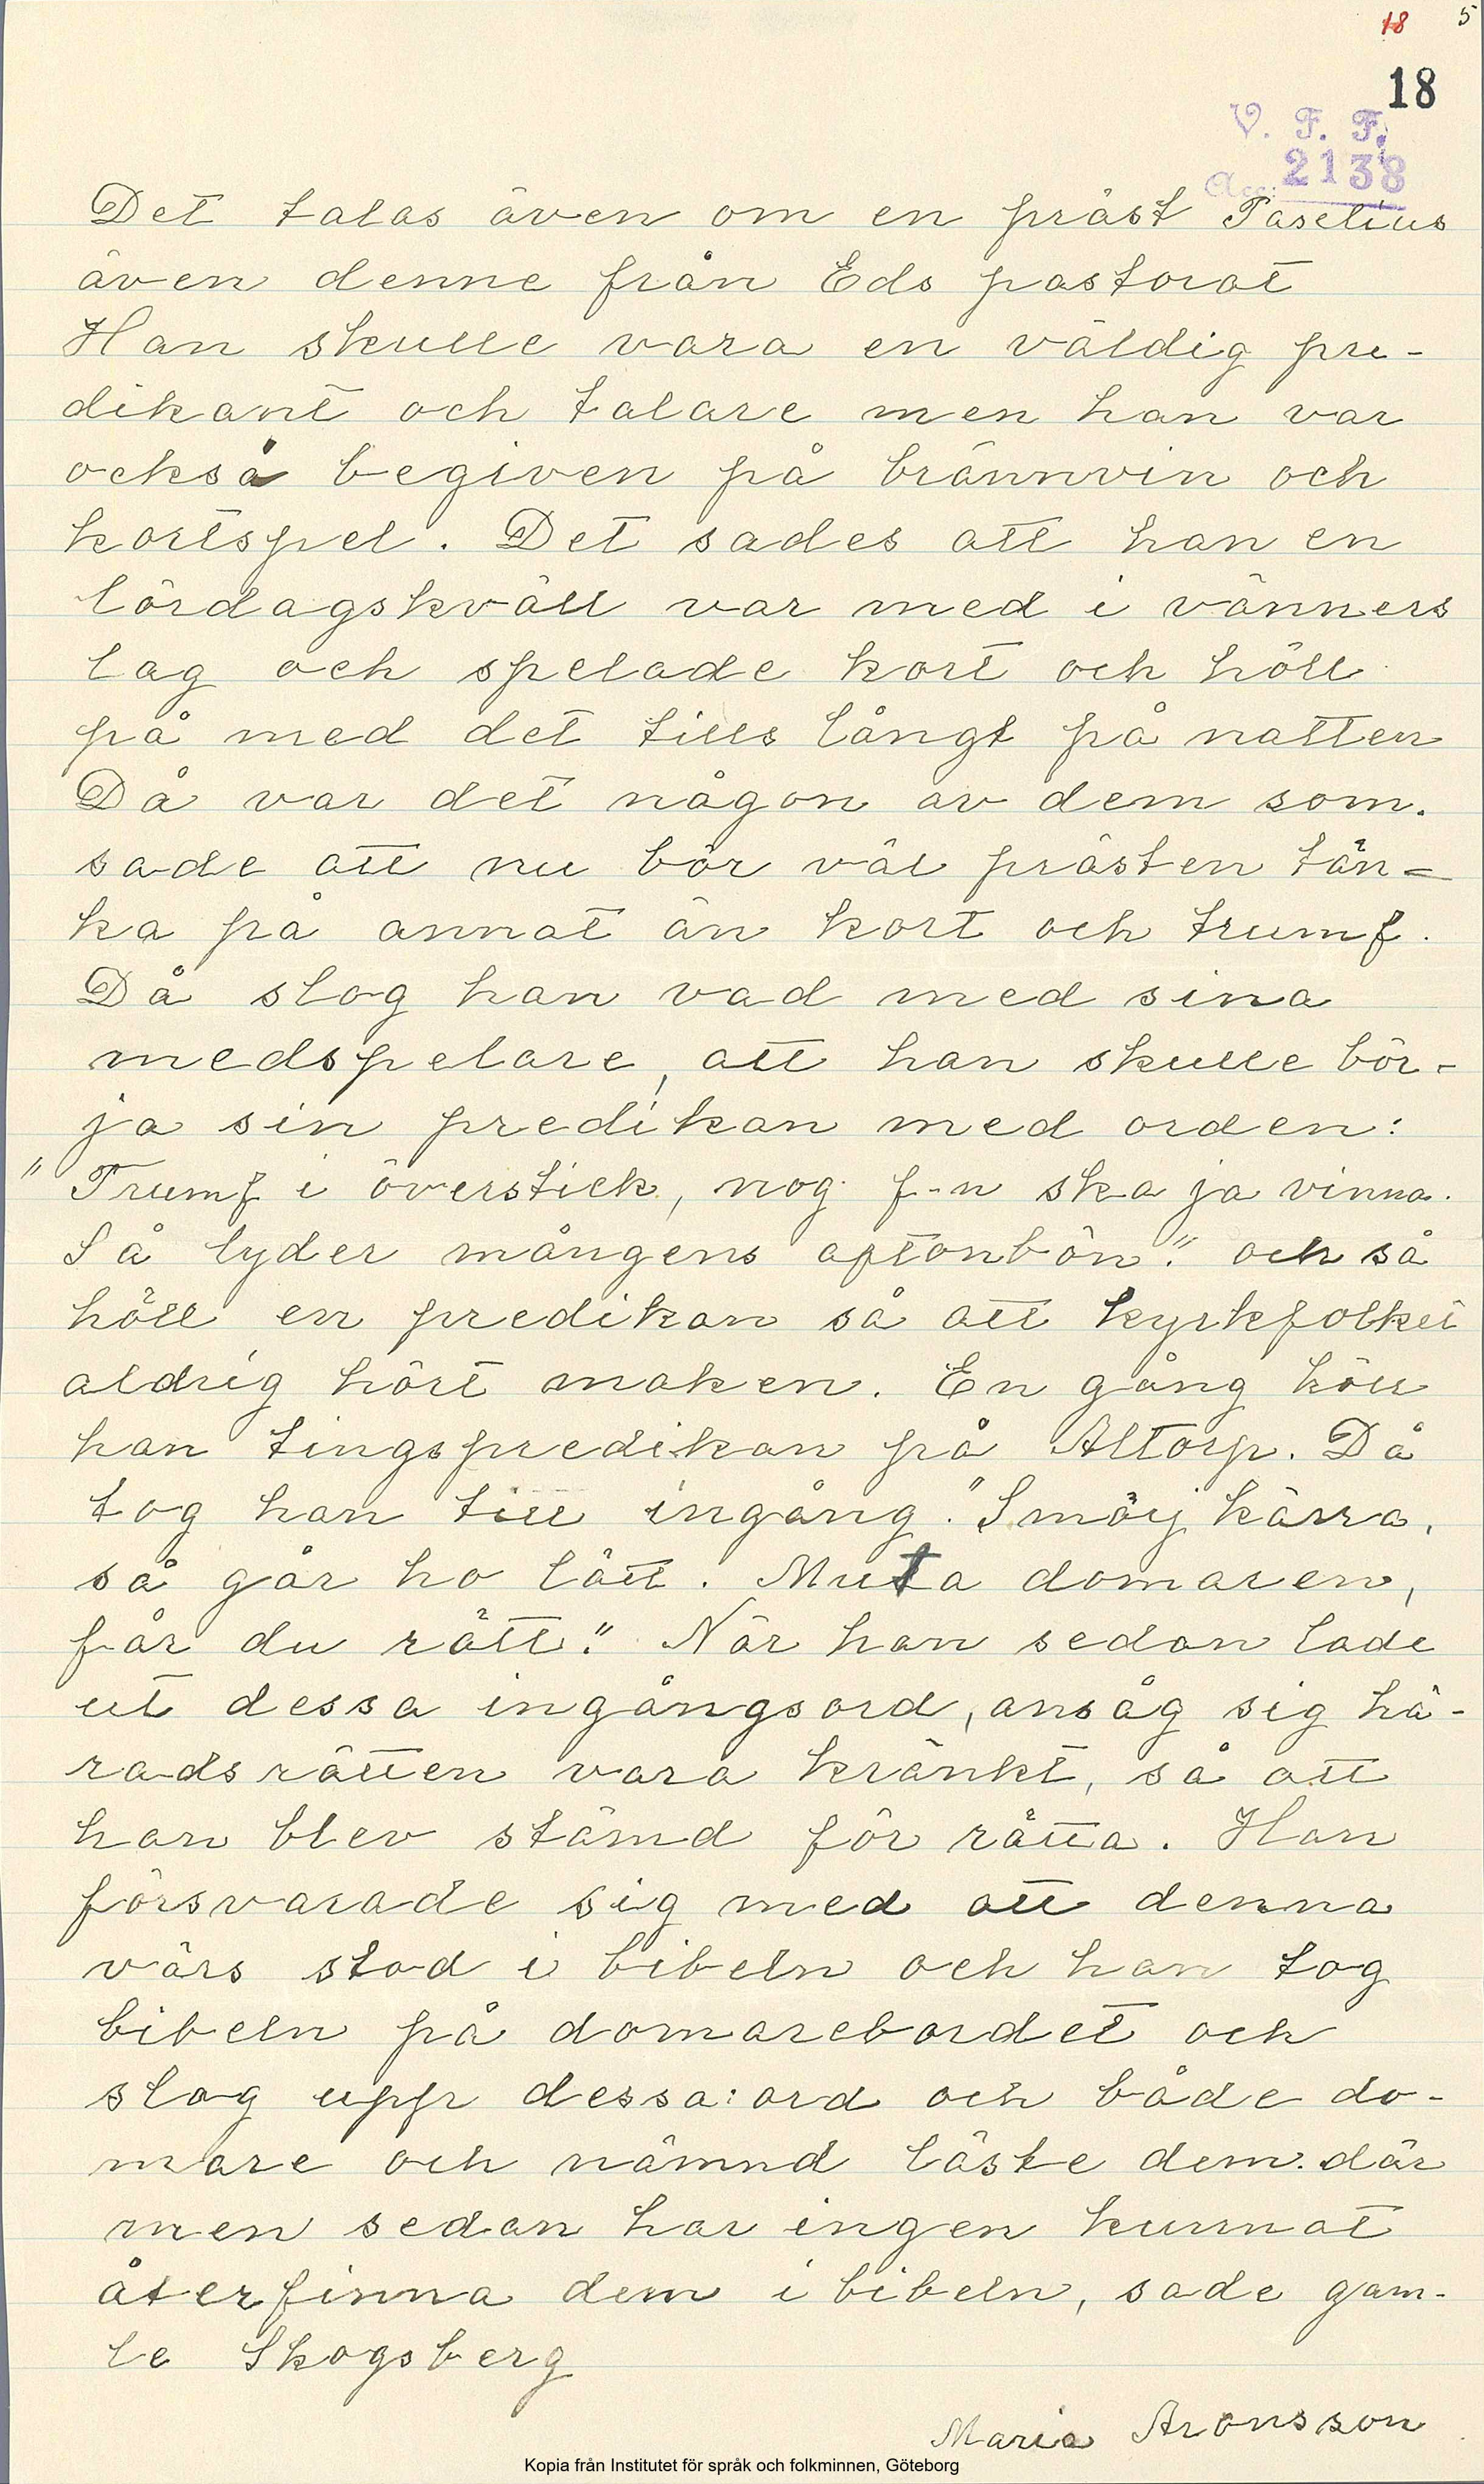 18 5
18
V. F. F.
Acc: 2138
Det talas även om en präst Paselius
även denne från Eds pastorat
Han skulle vara en väldig pre-
dikant och talare men han var
också begiven på brännvin och
kortspel. Det sades att han en
lördagskväll var med i vänners
lag och spelade kort och höll
på med det tills långt på natten
Då var det någon av dem som.
sade att nu bör väl prästen tän=
ka på annat än kort och trumf.
Då slog han vad med sina
medspelare, att han skulle bör-
ja sin predikan med orden:
"Trumf i överstick, nog f-n ska ja vinna.
Så lyder mångens aftonbön." och så
höll en predikan så att kyrkfolket
aldrig hört maken. En gång höll
han tingspredikan på Altorp. Då
tog han till ingång. "Smörj kärra,
så går ho lätt. Muta domaren,
får du rätt." När han sedan lade
ut dessa ingångsord, ansåg sig hä-
radsrätten vara kränkt, så att
han blev stämd för rätta. Han
försvarade sig med att denna
värs stod i bibeln och han tog
bibeln på domarebordet och
slog upp dessa: ord och både do-
mare och nämnd läste dem. där
men sedan har ingen kunnat
återfinna dem i bibeln, sade gam-
le Skogsberg
Maria Aronsson
Kopia från Institutet för språk och folkminnen, Göteborg